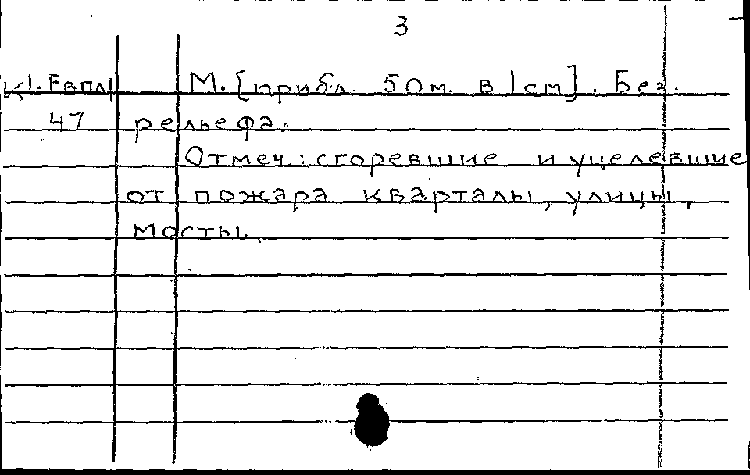 3
К1. Евпл М. [прибл. 50м. в 1см]. Без
47 рельефа.
Отмеч.: сгоревшие и уцелевшие
от пожара кварталы, улицы,
мосты.